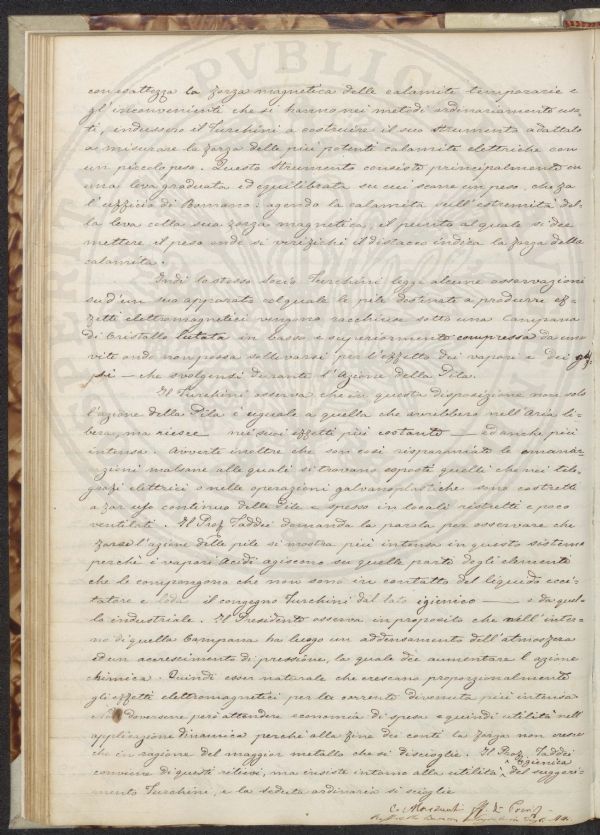 con esattezza la forza magnetica delle calamite temporarie e
gl'inconvenienti che si hanno nei metodi ordinariamente usa-
ti, indussero il Turchini a costruire il suo strumento adattato
a misurare la forza delle più potenti calamite elettriche con
un piccolo peso. Questo strumento consiste principalmente in
una leva graduata ed equilibrata su cui scorre un peso, che fa
l'uffizio di Romano: agendo la calamita sull'estremità del-
la leva colla sua forza magnetica, il punto al quale si dee
mettere il peso onde si verifichi il distacco indica la forza della
calamita.
Indi lo stesso Socio Turchini legge alcune osservazioni
su d'un suo apparato col quale le pile destinate a produrre ef-
fetti elettromagnetici vengono racchiuse sotto una Campana
di Cristallo lutata in basso e superiormente compressa da una
vite onde non possa sollevarsi per l'effetto dei vapori e dei ga-
psi — che svolgonsi durante l'Azione della Pila.
Il Turchini osserva che in questa disposizione non solo
l'azione della Pila è uguale a quella che avrebbero nell'Aria li-
bera, ma riesce nei suoi effetti più costante — ed anche più
intensa. Avverte inoltre che son così risparmiate le emana-
zioni malsane alle quali si trovano esposti quelli che nei tele-
grafi elettrici o nelle operazioni galvanoplastiche sono costretti
a far uso continuo delle Pile e spesso in locali ristretti e poco
ventilati. Il Prof. Taddei domanda la parola per osservare che
forse l'azione delle pile si mostra più intensa in questo sistema
perchè i vapori Acidi agiscono su quelle parti degli elementi
che le compongono che non sono in contatto del liquido ecci-
tatore e loda il congegno Turchini dal lato igienico — e da quel-
lo industriale. Il Presidente osserva in proposito che nell'inter-
no di quella Campana ha luogo un addensamento dell'atmosfera
ed un accrescimento di pressione, la quale dee aumentare l'azione
chimica. Quindi esser naturale che crescano proporzionalmente
gli effetti elettromagnetici per la corrente divenuta più intensa
Non doversene però attendere economia di spesa e quindi utilità nell'
applicazione dinamica perchè alla fine dei conti la forza non cresce
che in ragione del maggior metallo che si discioglie. Il Prof. Taddei
conviene di questi riflessi, ma insiste intorno alla utilità igienica del suggeri-
mento Turchini, e la seduta ordinaria si scioglie